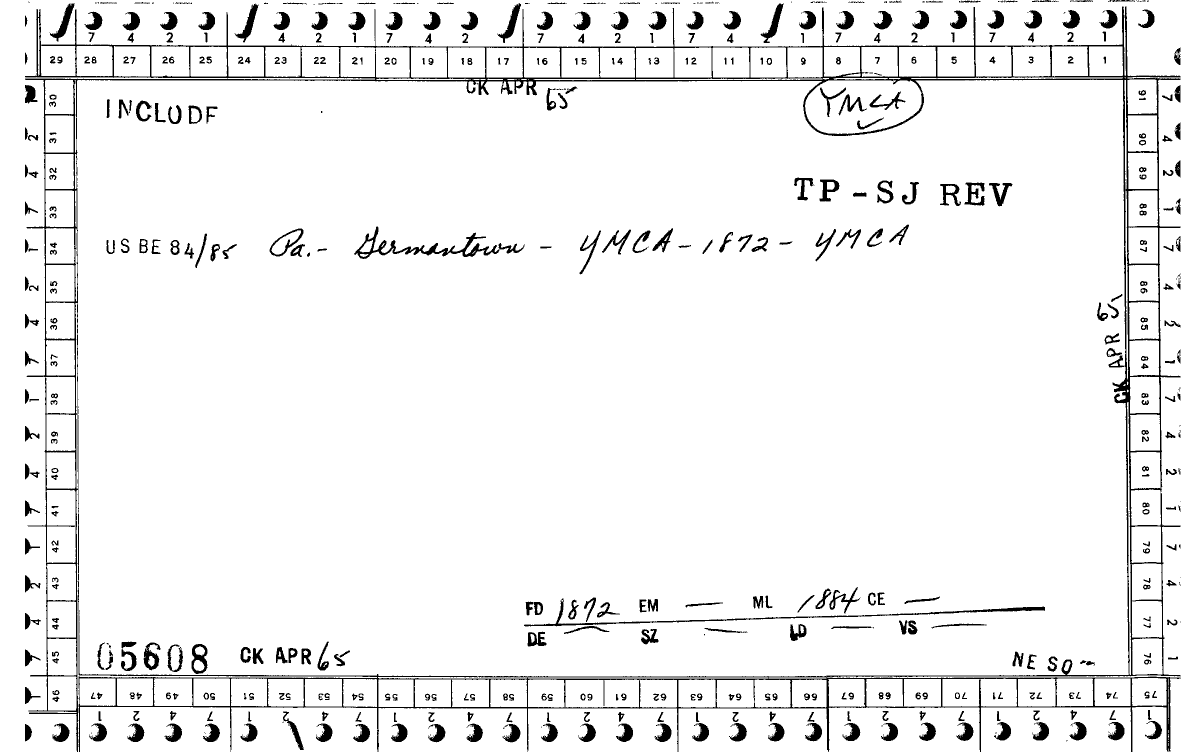 7 4 2 1 7 4 2 1 7 4 2 1 7 4 2 1 7 4 2 1 7 4 2 1 7 4 2 1
29 28 27 26 25 24 23 22 21 20 19 18 17 16 15 14 13 12 11 10 9 8 7 6 5 4 3 2 1
CK APR 65
INCLUDE
YMCA
TP-SJ REV
US BE 84/85 Pa. - Germantown - YMCA - 1872 - YMCA
CK APR 65
FD 1872 EM — ML 1884 CE —
DE — SZ — LD — VS —
05608 CK APR 65
NE SO
30 31 32 33 34 35 36 37 38 39 40 41 42 43 44 45 46
91 90 89 88 87 86 85 84 83 82 81 80 79 78 77 76 75
47 48 49 50 51 52 53 54 55 56 57 58 59 60 61 62 63 64 65 66 67 68 69 70 71 72 73 74